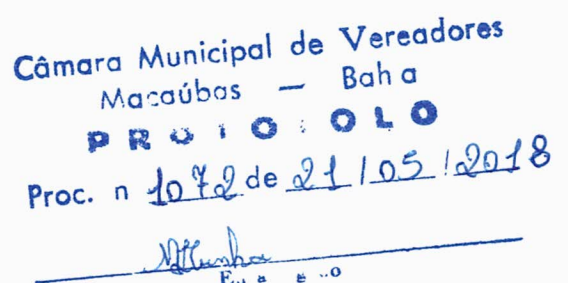 Câmara Municipal de Vereadores
Macaúbas — Bah a
PROTOCOLO
Proc. n 1072 de 21/05/2018